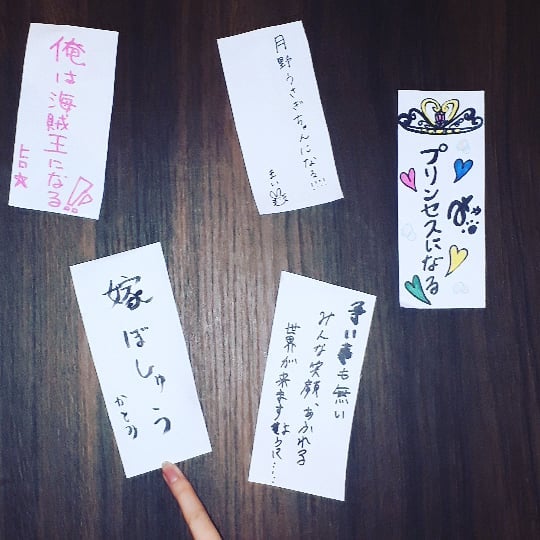 俺は海賊王になる!!
ヒロ
月野うさぎちゃんになる!!!
まい
プリンセスになる
嫁ぼしゅう
かとみ
争い事も無い
みんな笑顔、あふれる
世界が来ますように……